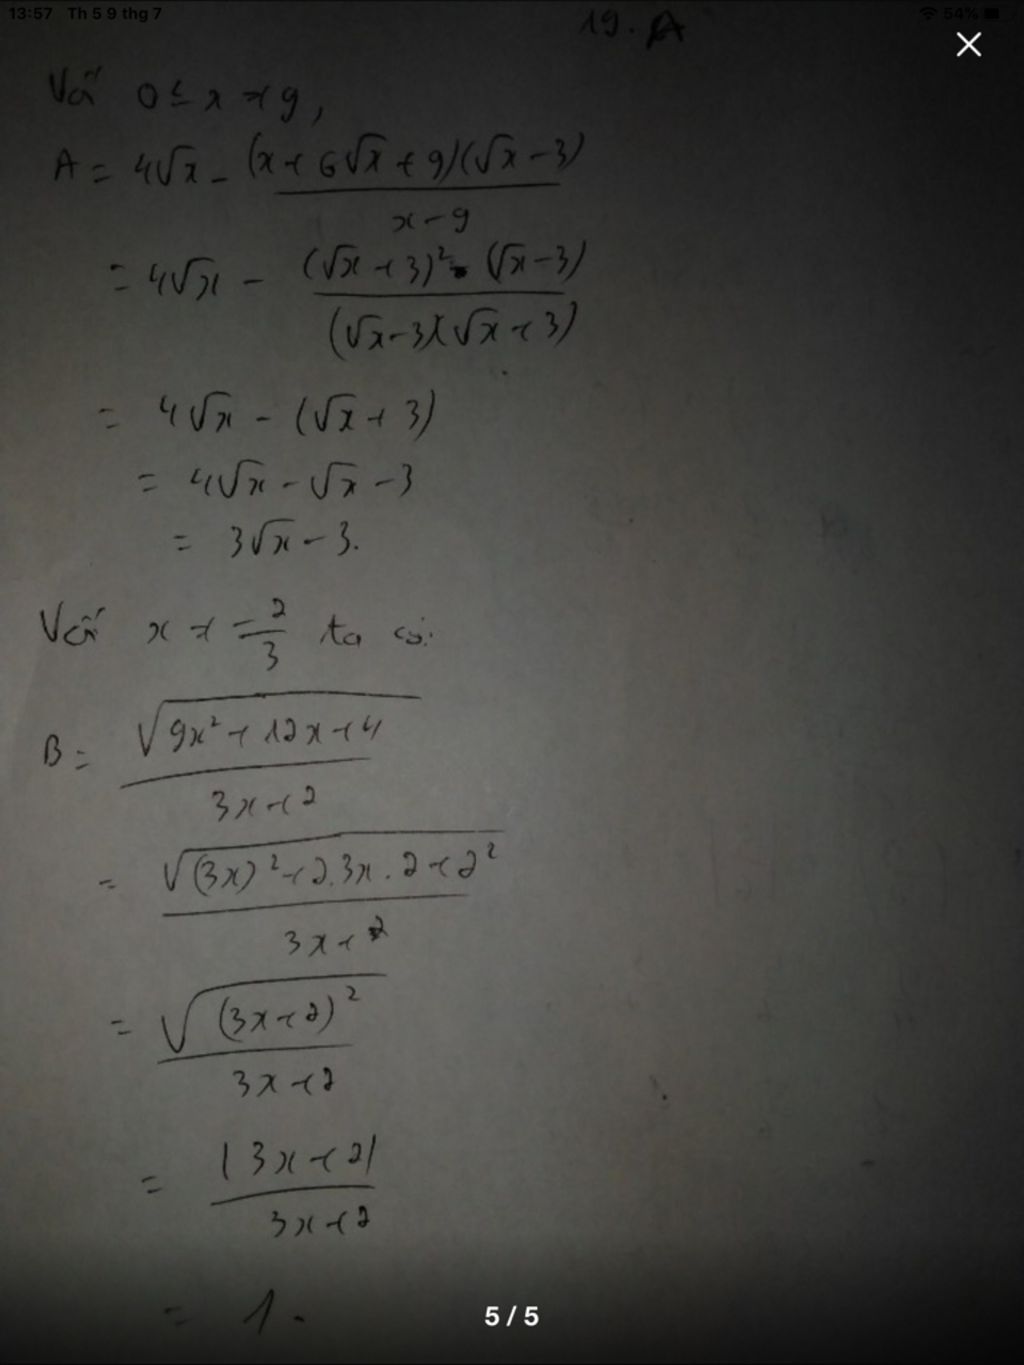 13:57 Th 5 9 thg 7
54%
19. A
Với 0 ≤ x ≠ 9,
A = 4√x - (x + 6√x + 9)(√x - 3) / x - 9
= 4√x - (√x + 3)² . (√x - 3) / (√x - 3)(√x + 3)
= 4√x - (√x + 3)
= 4√x - √x - 3
= 3√x - 3.
Với x ≠ -2/3 ta có:
B = √(9x² + 12x + 4) / 3x + 2
= √((3x)² + 2.3x.2 + 2²) / 3x + 2
= √((3x + 2)²) / 3x + 2
= |3x + 2| / 3x + 2
= 1.
5 / 5